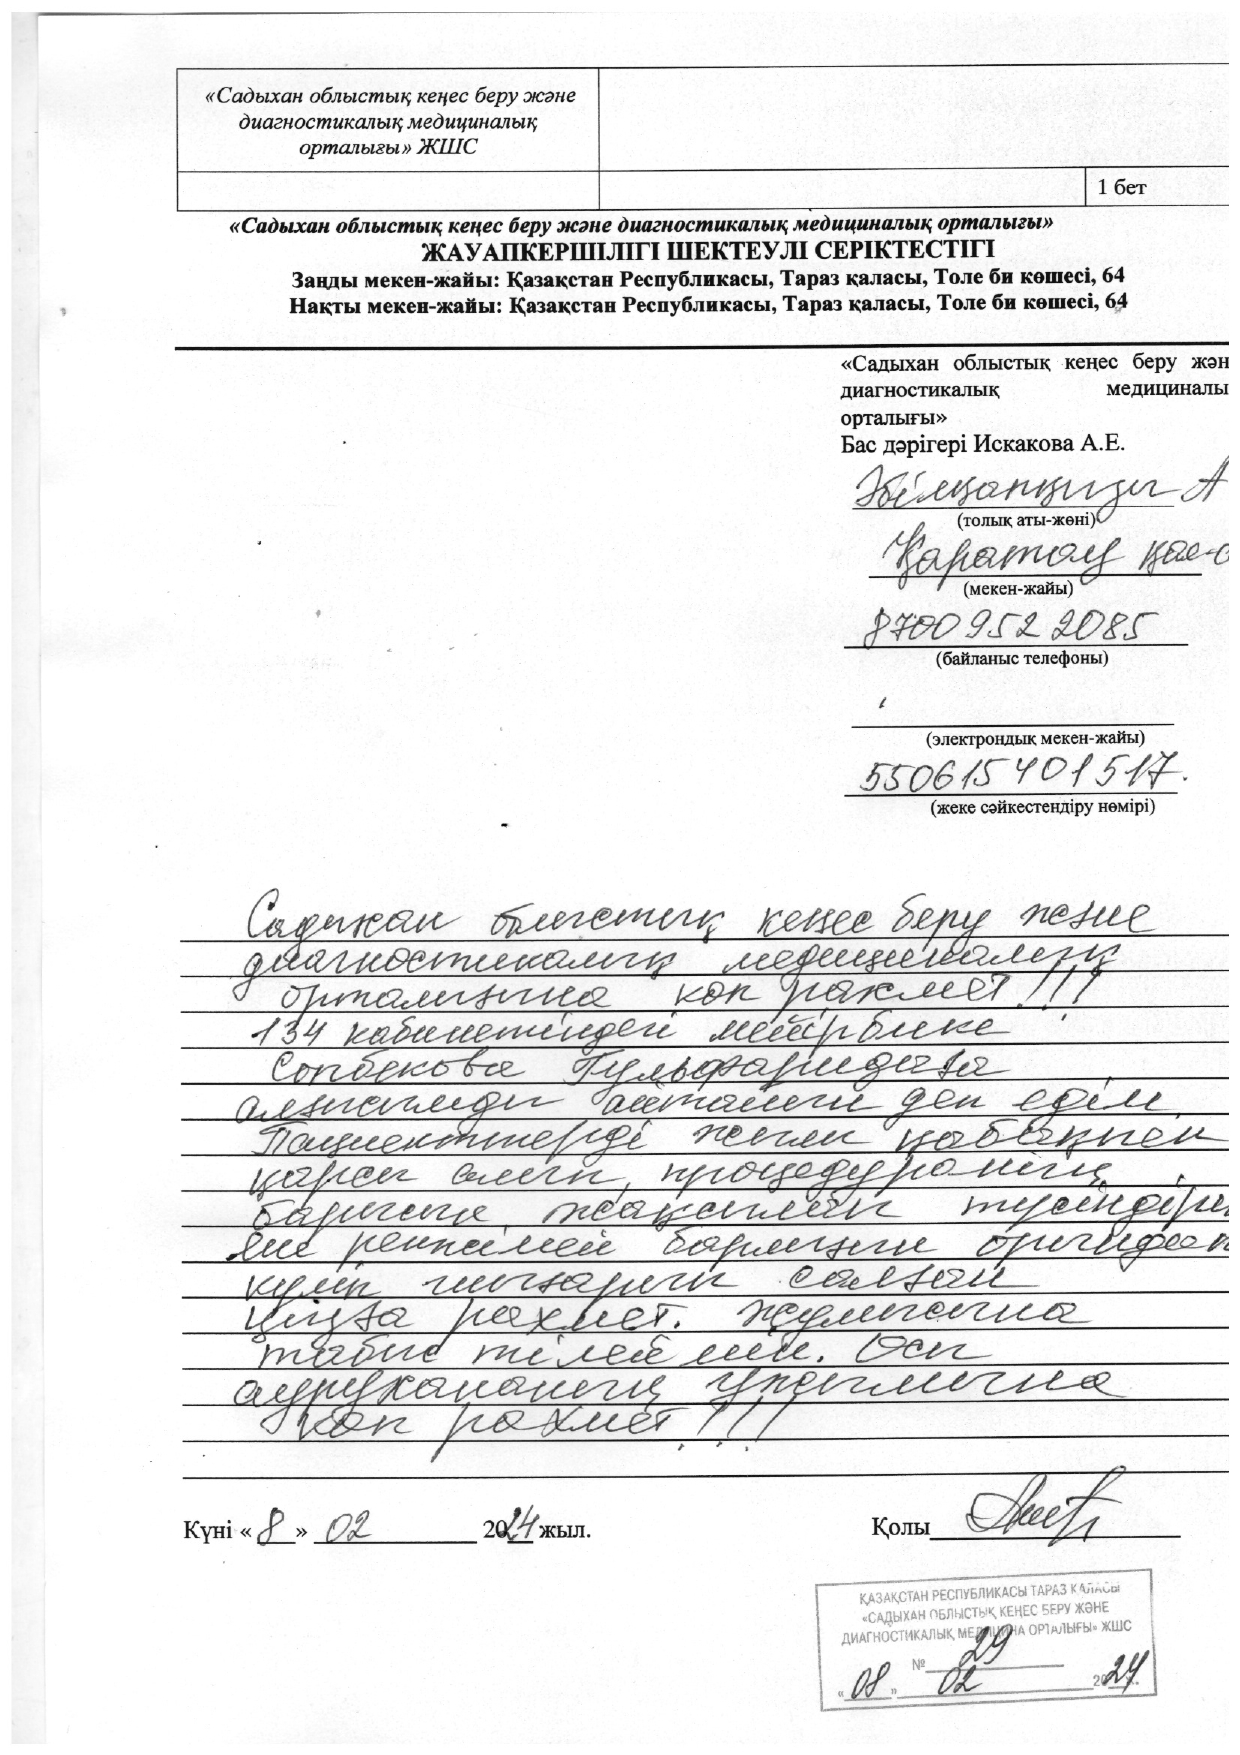 «Садыхан облыстық кеңес беру және
диагностикалық медициналық
орталығы» ЖШС
1 бет
«Садыхан облыстық кеңес беру және диагностикалық медициналық орталығы»
ЖАУАПКЕРШІЛІГІ ШЕКТЕУЛІ СЕРІКТЕСТІГІ
Заңды мекен-жайы: Қазақстан Республикасы, Тараз қаласы, Толе би көшесі, 64
Нақты мекен-жайы: Қазақстан Республикасы, Тараз қаласы, Толе би көшесі, 64
«Садыхан облыстық кеңес беру жән
диагностикалық медициналы
орталығы»
Бас дәрігері Искакова А.Е.
А
(толық аты-жөні)
Қаратау қал-с
(мекен-жайы)
8700 952 2085
(байланыс телефоны)
(электрондық мекен-жайы)
550615401517.
(жеке сәйкестендіру нөмірі)
Садыхан облыстық кеңес беру және
диагностикалық медициналық
орталығына көп рахмет!!!
134 кабинетіндегі мейірбике
Сопбекова Гульфаридаға
алғысымды айтайын деп едім.
Пациенттерді жылы қабақпен
қарсы алып, процедураның
барысын жақсылап түсіндіріп
еш ренжімей барлығын орнынан
күліп шығарып салған
қызға рахмет. Жұмысына
табыс тілеймін. Осы
аурухананың ұжымына
көп рахмет!!!
Күні «8» 02 2024 жыл.
Қолы
ҚАЗАҚСТАН РЕСПУБЛИКАСЫ ТАРАЗ ҚАЛАСЫ
«САДЫХАН ОБЛЫСТЫҚ КЕҢЕС БЕРУ ЖӘНЕ
ДИАГНОСТИКАЛЫҚ МЕДИЦИНА ОРТАЛЫҒЫ» ЖШС
№ 29
«08» 02 2024